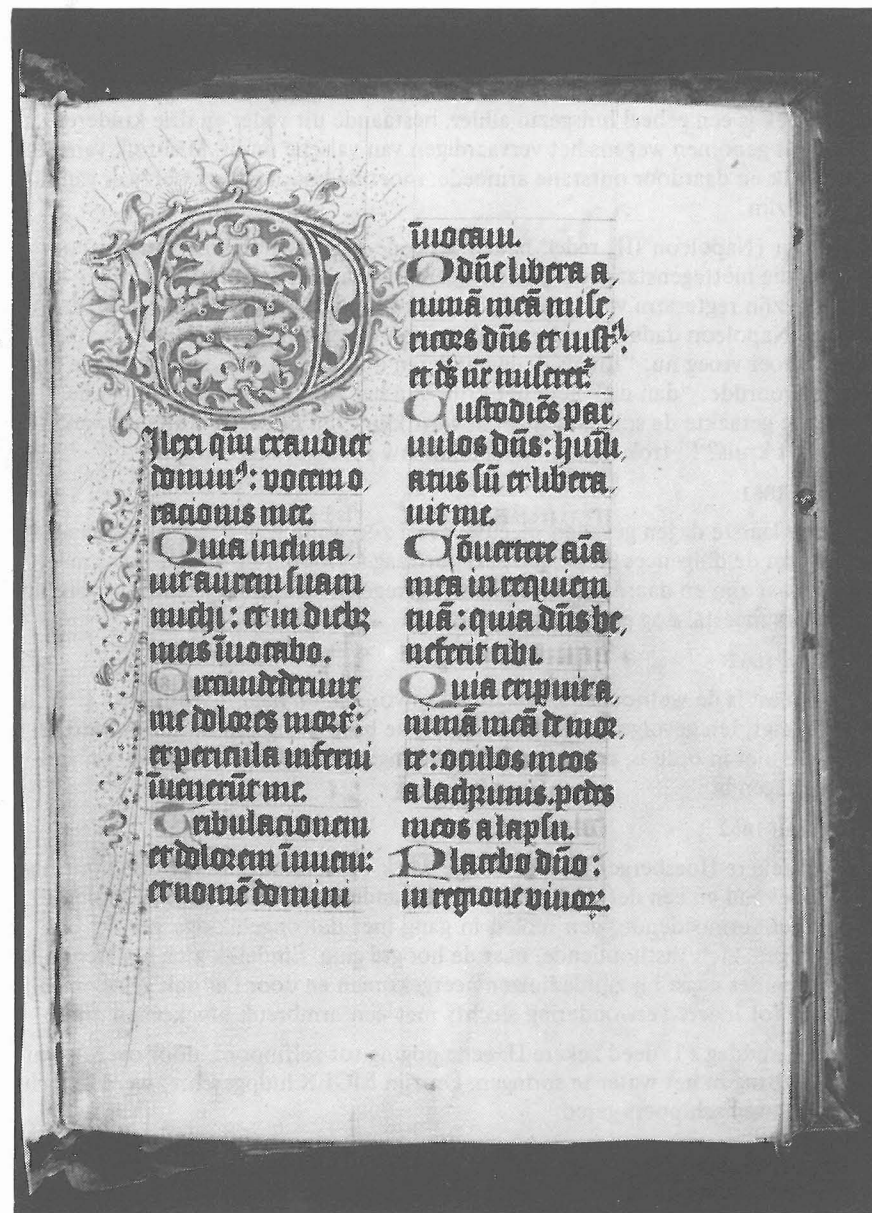 D
Ilexi qm̄ exaudiet
dominꝰ: vocem o
racionis mee.
Quia inclina
uit aurem suam
michi: et in diebꝫ
meis īuocabo.
Circumdederunt
me dolores mort᷑:
et pericula inferni
īuenerūt me.
Tribulacionem
et dolorem īnueni:
et nomē domini
īuocaui.
O dn̄e libera a,
nimā meā mise
ricors dn̄s et iustꝰ:
et ds̄ nr̄ miseret᷑
Custodiēs par
uulos dn̄s: hūili,
atus sū et libera,
uit me.
Cōuertere aīa
mea in requiem
tuā: quia dn̄s be,
nefecit tibi.
Quia eripuit a,
nimā meā de mor,
te: oculos meos
a lachrimis. pedes
meos a lapsu.
Placebo dn̄o:
in regione viuoꝝ.